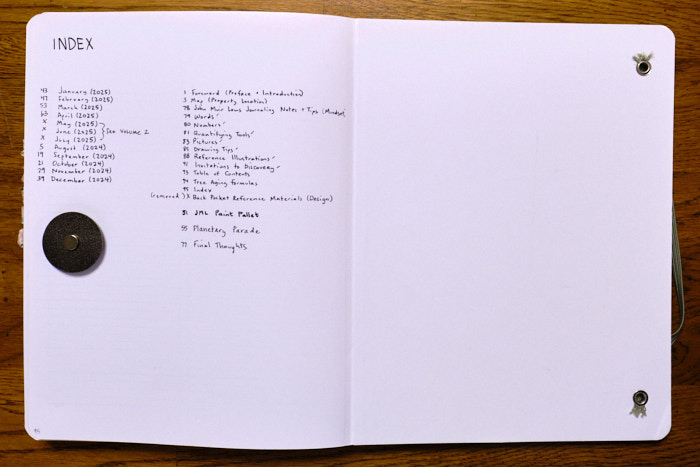 INDEX
43 January (2025)
47 February (2025)
53 March (2025)
63 April (2025)
X May (2025)
X June (2025) } See Volume 2
X July (2025)
5 August (2024)
19 September (2024)
21 October (2024)
29 November (2024)
39 December (2024)
1 Foreword (Preface + Introduction)
3 Map (Property Location)
78 John Muir Laws Journaling Notes + Tips (Mindset)
79 Words ✓
80 Numbers ✓
81 Quantifying Tools ✓
83 Pictures ✓
85 Drawing Tips ✓
88 Reference Illustrations ✓
91 Invitations to Discovery ✓
93 Table of Contents
94 Tree Aging formulas
95 Index
(removed) X Back Pocket Reference Materials (Design)
51 JML Paint Pallet
55 Planetary Parade
77 Final Thoughts